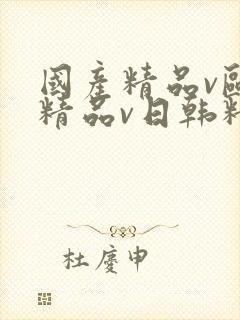 國產精品v區
精品v日韩精
杜慶申